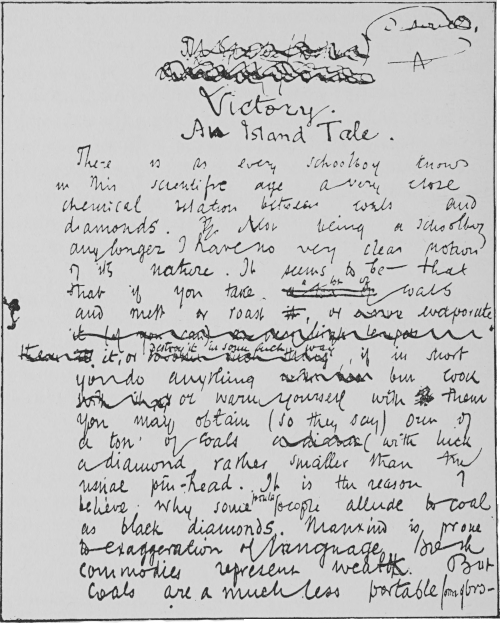 Victory.
An Island Tale.
There is as every schoolboy knows
in this scientific age a very close
chemical relation between coals and
diamonds. Not being a schoolboy
any longer I have no very clear notion
of its nature. It seems to be that
that if you take a bit of coals
and melt or roast it, or evaporate
it, or destroy it in some such way
if in short
you do anything but cook
or warm yourself with them
you may obtain (so they say) out of
a ton of coals (with luck
a diamond rather smaller than the
usual pin-head. It is the reason I
believe why some people allude to coal
as black diamonds. Mankind is prone
to exaggeration of language. Both
commodies represent wealth. But
coals are a much less portable form of pro-